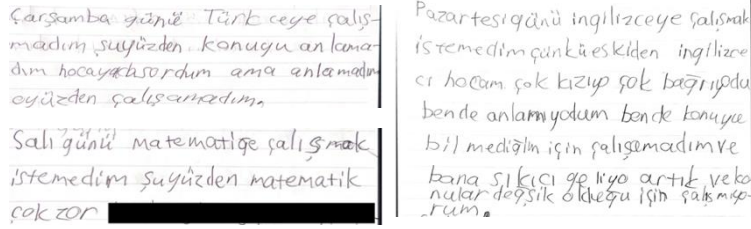 Çarşamba günü Türkceye çalış-
madım şuyüzden konuyu anlama-
dım hocaya sordum ama anlamadım
oyüzden çalışamadım.
Salı günü matematiğe çalışmak
istemedim şuyüzden matematik
çok zor
Pazartesi günü ingilizceye çalışmak
istemedim çünkü eskiden ingilizce
ci hocam çok kızıp çok bağrıyodu
bende anlamıyodum bende konuyu
bilmediğim için çalışamadım ve
bana sıkıcı geliyo artık ve ko
nular değşik olduğu için çalışmıyo-
rum.